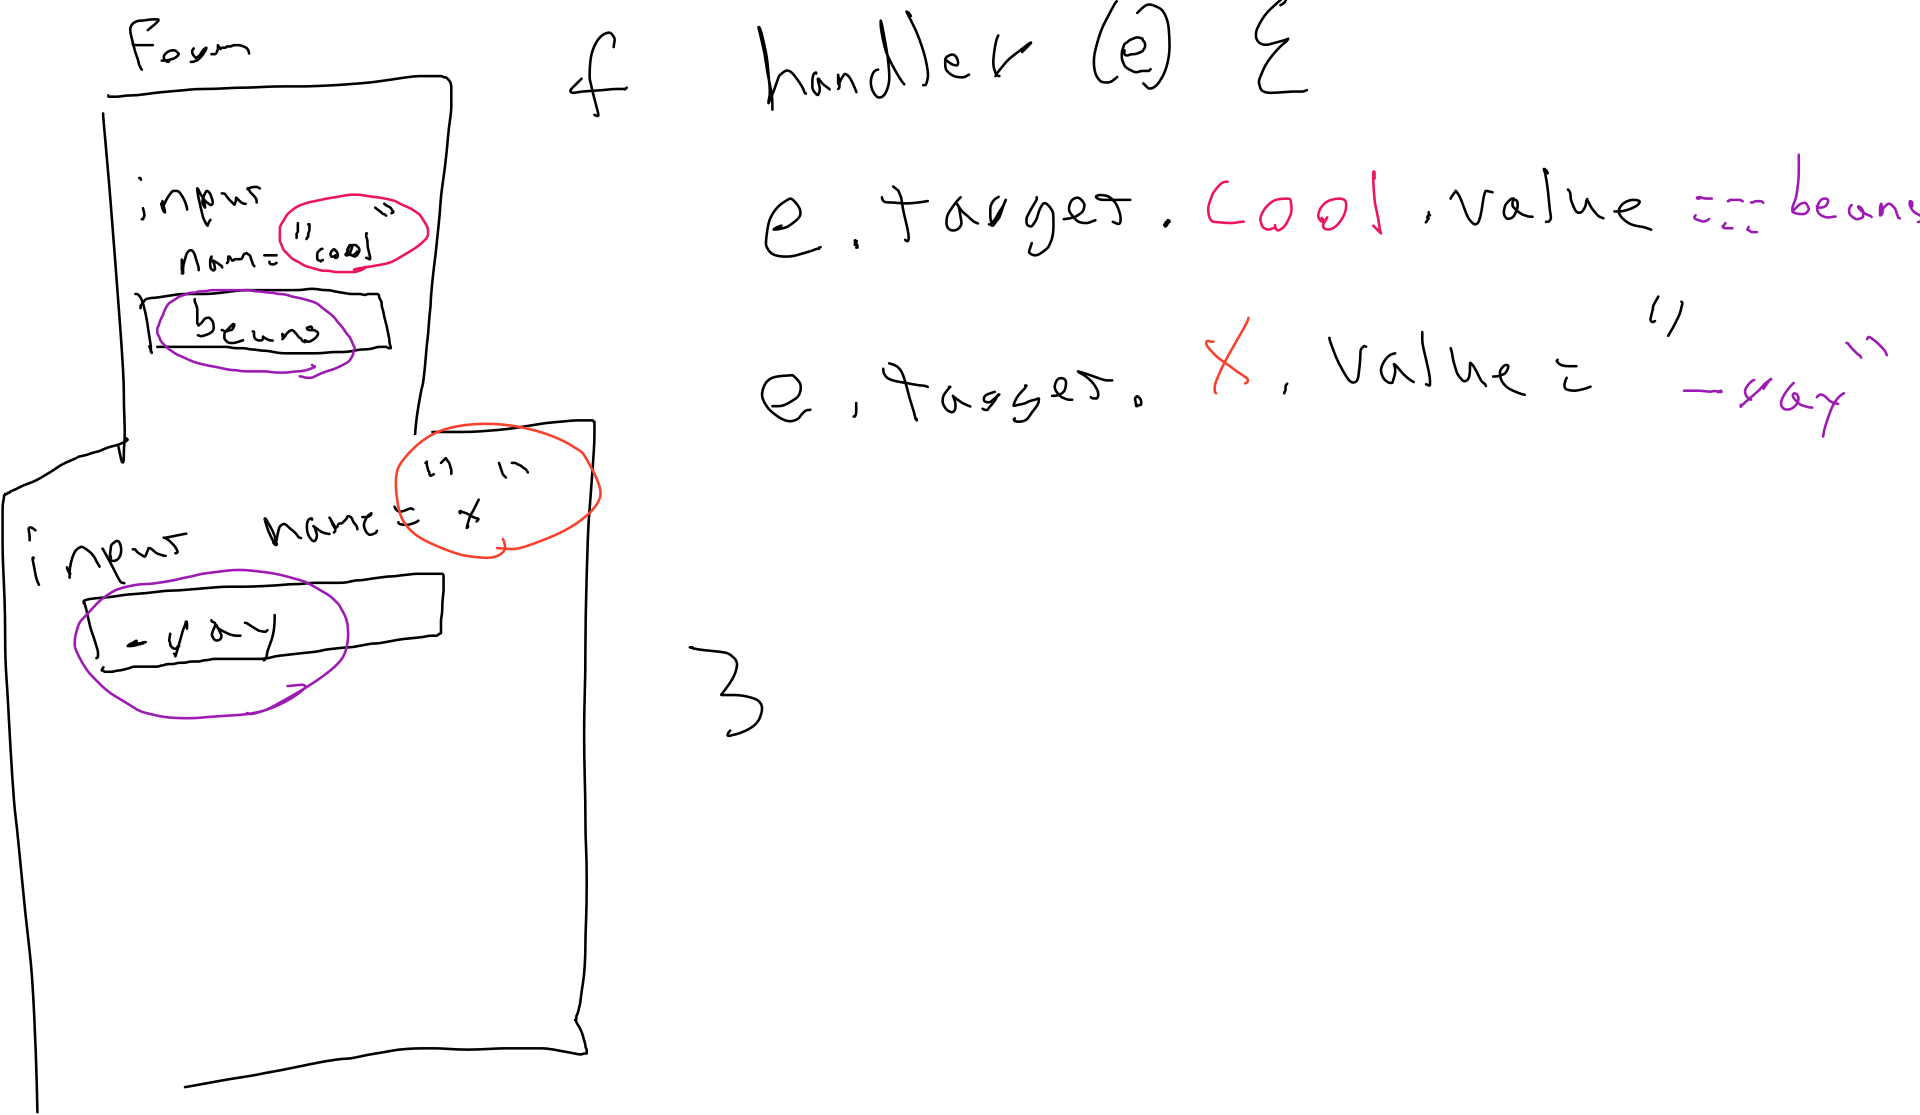 Form
input
name= "cool"
beans
input name= "x"
-yay
f handler (e) {
e.target.cool.value === beans
e.target.x.value = "-yay"
}